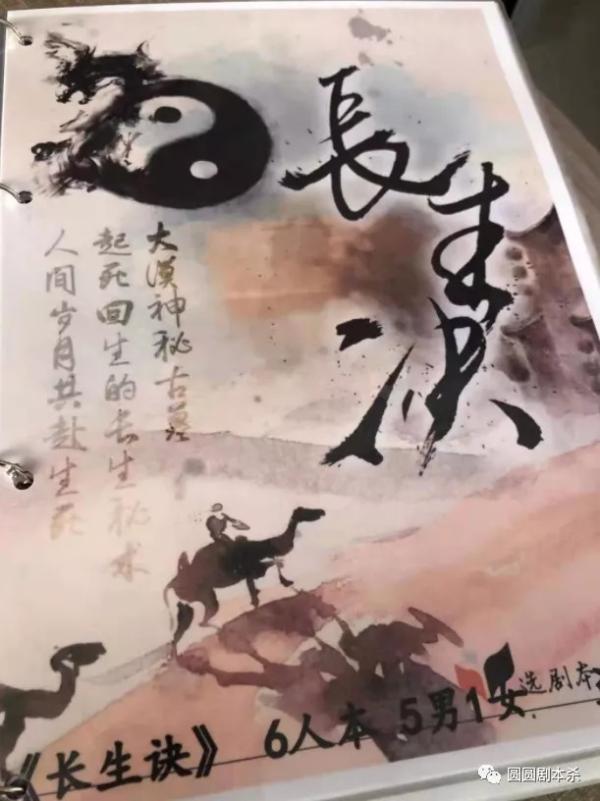 長生决
大漠神秘古墓
起死回生的长生秘术
人间岁月共赴生死
选剧本
《长生诀》 6人本 5男1女
圆圆剧本杀